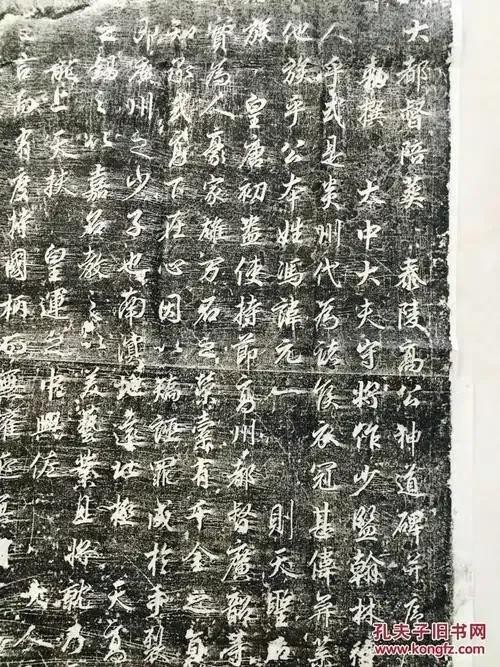 大都督陪葬 泰陵高公神道碑并序
勑撰 太中大夫守將作少監翰林
人乎或是炎州代為諸侯衣冠甚偉弈
他族乎公本姓馮諱元一 則天聖后
族 皇唐初盎使持節高州都督廣韶等
實為人豪家雄萬石之榮橐有千金之
知 下在心因以矯誣罪成於手
即廣州之少子也南溟地遠北極 天高
之錫之以嘉名教之以美藝業且將就
龍上天扶 皇運之中興佐
言而有度持國柄而無權
孔夫子旧书网
www.kongfz.com